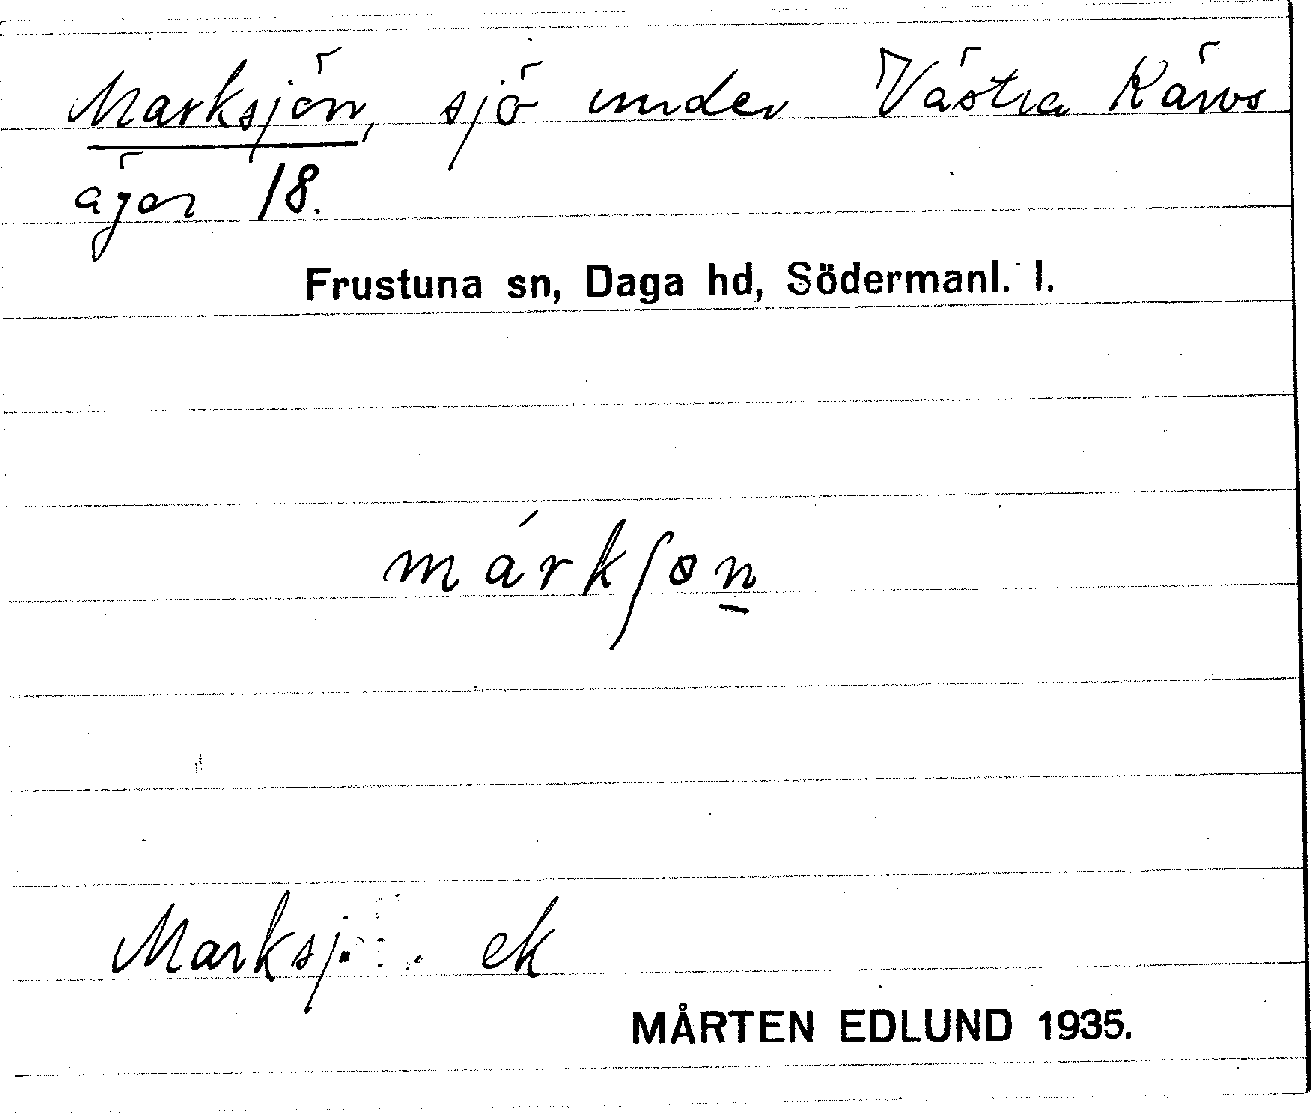 Marksjön, sjö under Västra Kärvs
ägor 18.
Frustuna sn, Daga hd, Södermanl. l.
márkʃon̲
ek
MÅRTEN EDLUND 1935.